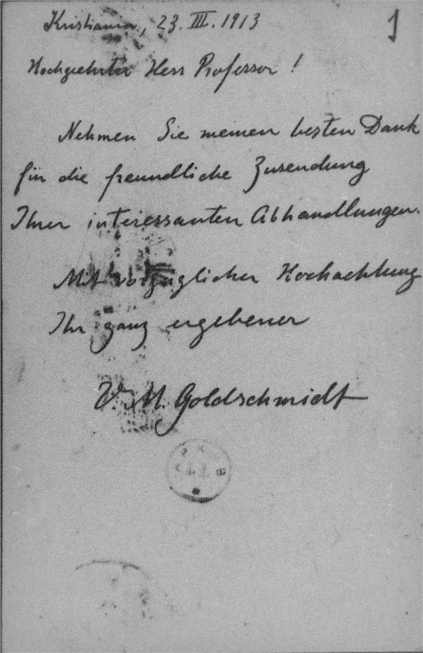 Kristiania, 23. III. 1913
1
Hochgeehrter Herr Professor!
Nehmen Sie meinen besten Dank
für die freundliche Zusendung
Ihrer interessanten Abhandlungen.
Mit vorzüglicher Hochachtung
Ihr ganz ergebener
V. M. Goldschmidt